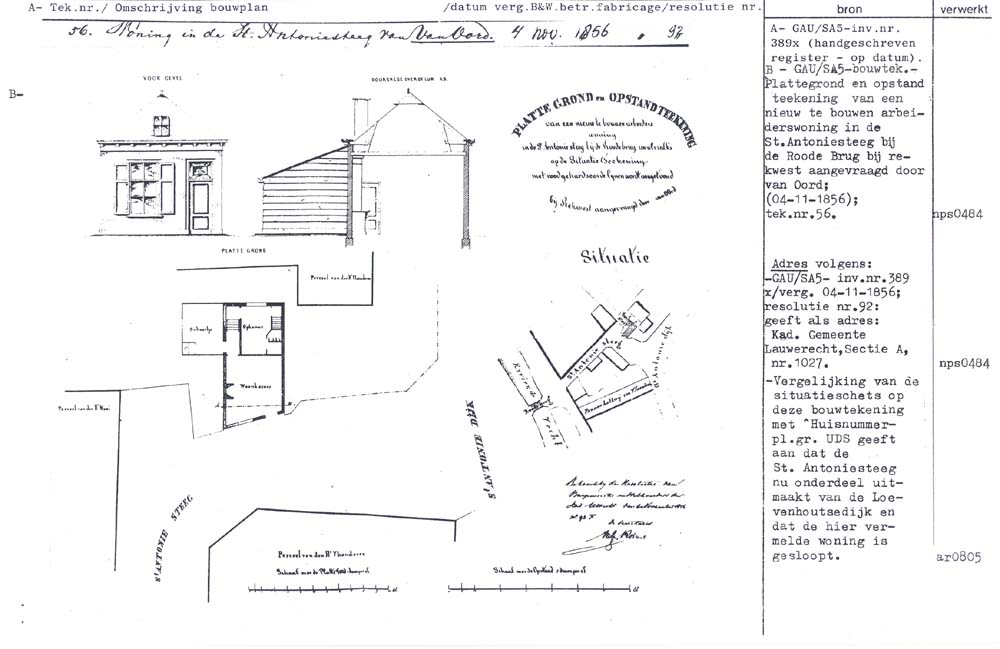 A- Tek.nr./ Omschrijving bouwplan /datum verg.B&W.betr.fabricage/resolutie nr.
bron
verwerkt
56. Woning in de St. Antoniesteeg van Van Oord. 4 nov. 1856 „ 92
B-
VOOR GEVEL
PLATTE GROND en OPSTANDTEEKENING
van een nieuw te bouwen arbeiders
woning
in de St. Antonisteeg bij de Roodebrug
op de Situatie Teekening
bij Rekwest aangevraagd door van Oord
PLATTE GROND
Perceel van den Hr Vlaanderen
Schuurtje
Opkamer
Woonkamer
Perceel van den Hr
Situatie
St Antonie steeg
St Antonie dijk
Vecht
ST ANTONIE DIJK
ST ANTONIE STEEG
Behoort bij de Resolutie van
Burgemeester en Wethouders der
Stad Utrecht
No 92
de Secretaris
Perceel van den Hr Vlaanderen
Schaal voor de Platte Grond
Schaal voor de Opstand
A- GAU/SA5-inv.nr.
389x (handgeschreven
register - op datum).
B - GAU/SA5-bouwtek.-
Plattegrond en opstand
teekening van een
nieuw te bouwen arbei-
derswoning in de
St.Antoniesteeg bij
de Roode Brug bij re-
kwest aangevraagd door
van Oord;
(04-11-1856);
tek.nr.56.
nps0484
Adres volgens:
-GAU/SA5- inv.nr.389
x/verg. 04-11-1856;
resolutie nr.92:
geeft als adres:
Kad. Gemeente
Lauwerecht,Sectie A,
nr.1027.
nps0484
-Vergelijking van de
situatieschets op
deze bouwtekening
met "Huisnummer-
pl.gr. UDS geeft
aan dat de
St. Antoniesteeg
nu onderdeel uit-
maakt van de Loe-
venhoutsedijk en
dat de hier ver-
melde woning is
gesloopt.
ar0805